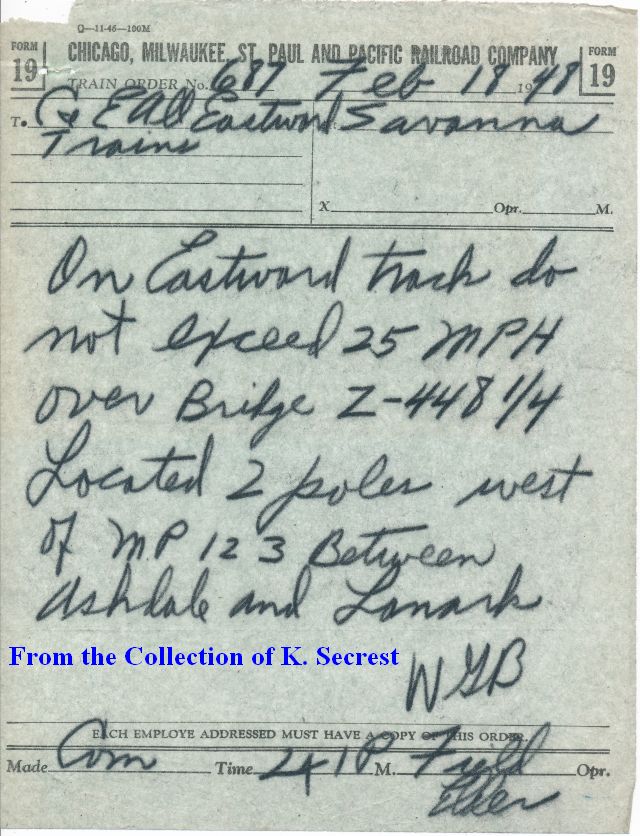 Q—11-46—100M
FORM 19 CHICAGO, MILWAUKEE, ST. PAUL AND PACIFIC RAILROAD COMPANY FORM 19
TRAIN ORDER No. 687 Feb 18 1948
To C & E All Eastward Savanna
Trains
X Opr. M.
On Eastward track do
not exceed 25 MPH
over Bridge Z-448 1/4
Located 2 poles west
of MP 123 Between
Ashdale and Lanark
From the Collection of K. Secrest
WGB
EACH EMPLOYE ADDRESSED MUST HAVE A COPY OF THIS ORDER.
Made Com Time 241P M. Field Opr.